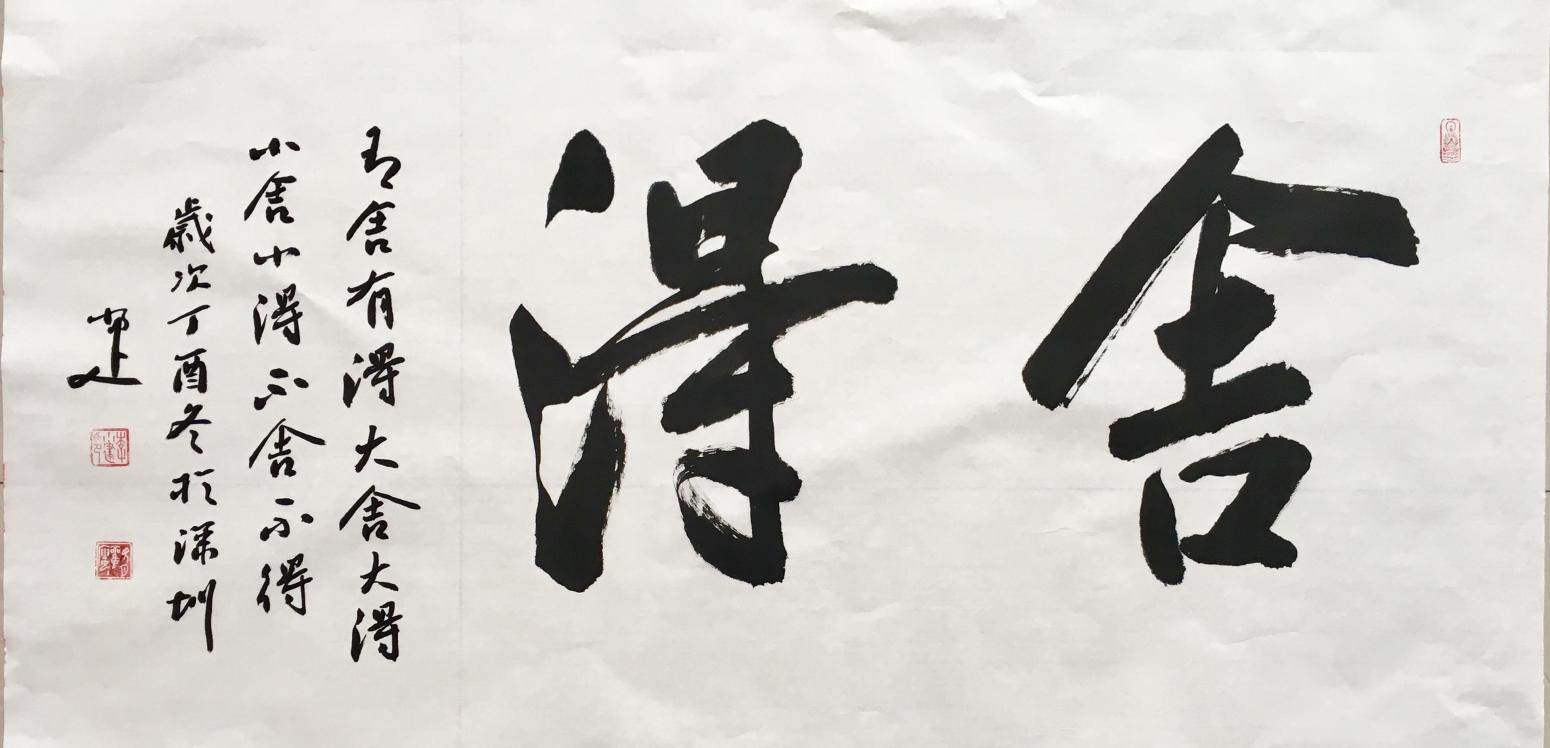 舍得
有舍有得大舍大得
小舍小得不舍不得
歲次丁酉冬於深圳